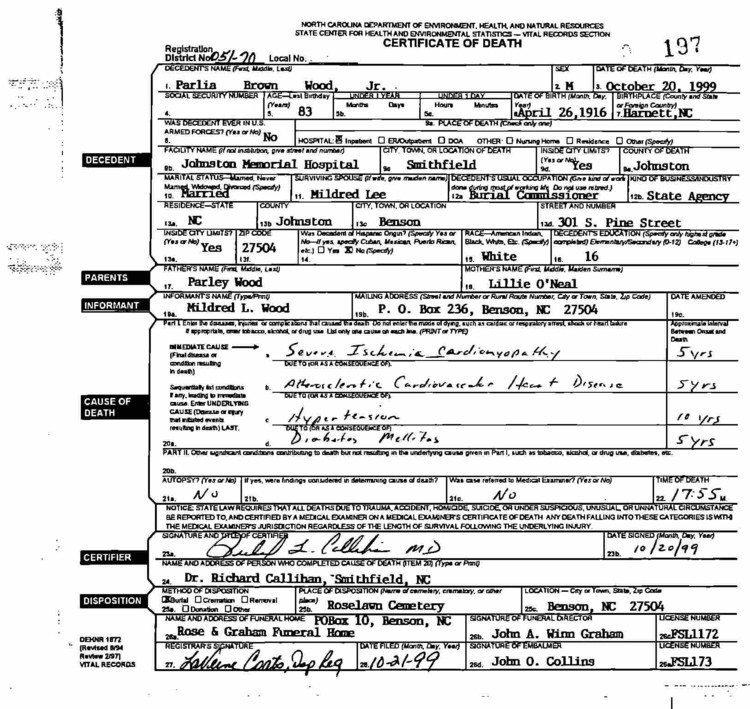 NORTH CAROLINA DEPARTMENT OF ENVIRONMENT, HEALTH, AND NATURAL RESOURCES
STATE CENTER FOR HEALTH AND ENVIRONMENTAL STATISTICS — VITAL RECORDS SECTION
CERTIFICATE OF DEATH
197
Registration
District No 051-70 Local No.
DECEDENT'S NAME (First, Middle, Last) SEX DATE OF DEATH (Month, Day, Year)
1. Parlia Brown Wood, Jr. 2. M 3. October 20, 1999
SOCIAL SECURITY NUMBER AGE—Last Birthday UNDER 1 YEAR UNDER 1 DAY DATE OF BIRTH (Month, Day, BIRTHPLACE (County and State
(Years) Months Days Hours Minutes Year) or Foreign Country)
4. 5. 83 5b. 5c. 6. April 26,1916 7. Harnett,NC
WAS DECEDENT EVER IN U.S. 9a. PLACE OF DEATH (Check only one)
ARMED FORCES? (Yes or No)
8. No HOSPITAL: ☒ Inpatient ☐ ER/Outpatient ☐ DOA OTHER: ☐ Nursing Home ☐ Residence ☐ Other (Specify)
DECEDENT
FACILITY NAME (If not institution, give street and number) CITY, TOWN, OR LOCATION OF DEATH INSIDE CITY LIMITS? COUNTY OF DEATH
(Yes or No)
9b. Johnston Memorial Hospital 9c. Smithfield 9d. Yes 9e. Johnston
MARITAL STATUS—Married, Never SURVIVING SPOUSE (If wife, give maiden name) DECEDENT'S USUAL OCCUPATION (Give kind of work KIND OF BUSINESS/INDUSTRY
Married, Widowed, Divorced (Specify) done during most of working life. Do not use retired.)
10. Married 11. Mildred Lee 12a. Burial Commissioner 12b. State Agency
RESIDENCE—STATE COUNTY CITY, TOWN, OR LOCATION STREET AND NUMBER
13a. NC 13b Johnston 13c Benson 13d. 301 S. Pine Street
INSIDE CITY LIMITS? ZIP CODE Was Decedent of Hispanic Origin? (Specify Yes or RACE—American Indian, DECEDENT'S EDUCATION (Specify only highest grade
(Yes or No) No—If yes, specify Cuban, Mexican, Puerto Rican, Black, White, Etc. (Specify) completed) Elementary/Secondary (0-12) College (13-17+)
13e. Yes 13f. 27504 14. etc.) ☐ Yes ☒ No (Specify) 15. White 16. 16
PARENTS
FATHER'S NAME (First, Middle, Last) MOTHER'S NAME (First, Middle, Maiden Surname)
17. Parley Wood 18. Lillie O'Neal
INFORMANT
INFORMANT'S NAME (Type/Print) MAILING ADDRESS (Street and Number or Rural Route Number, City or Town, State, Zip Code) DATE AMENDED
19a. Mildred L. Wood 19b. P. O. Box 236, Benson, NC 27504 19c.
Part I. Enter the diseases, injuries or complications that caused the death. Do not enter the mode of dying, such as cardiac or respiratory arrest, shock or heart failure Approximate Interval
If appropriate, enter tobacco, alcohol, or drug use. List only one cause on each line. (PRINT or TYPE) Between Onset and Death
CAUSE OF DEATH
IMMEDIATE CAUSE
(Final disease or condition resulting in death)
a. Severe Ischemia Cardiomyopathy 5 yrs
DUE TO (OR AS A CONSEQUENCE OF):
Sequentially list conditions if any, leading to immediate cause. Enter UNDERLYING CAUSE (Disease or injury that initiated events resulting in death) LAST.
b. Atherosclerotic Cardiovascular Heart Disease 5 yrs
DUE TO (OR AS A CONSEQUENCE OF):
c. Hypertension 10 yrs
DUE TO (OR AS A CONSEQUENCE OF)
20a. d. Diabetes Mellitas 5 yrs
PART II. Other significant conditions contributing to death but not resulting in the underlying cause given in Part I, such as tobacco, alcohol, or drug use, diabetes, etc.
20b.
AUTOPSY? (Yes or No) If yes, were findings considered in determining cause of death? Was case referred to Medical Examiner? (Yes or No) TIME OF DEATH
21a. No 21b. 21c. No 22. 17:55 M
NOTICE: STATE LAW REQUIRES THAT ALL DEATHS DUE TO TRAUMA, ACCIDENT, HOMICIDE, SUICIDE, OR UNDER SUSPICIOUS, UNUSUAL, OR UNNATURAL CIRCUMSTANCE
BE REPORTED TO, AND CERTIFIED BY A MEDICAL EXAMINER ON A MEDICAL EXAMINER'S CERTIFICATE OF DEATH ANY DEATH FALLING INTO THESE CATEGORIES IS WITHI
THE MEDICAL EXAMINER'S JURISDICTION REGARDLESS OF THE LENGTH OF SURVIVAL FOLLOWING THE UNDERLYING INJURY.
CERTIFIER
SIGNATURE AND TITLE OF CERTIFIER DATE SIGNED (Month, Day, Year)
23a. L. Callihan MD 23b. 10/20/99
NAME AND ADDRESS OF PERSON WHO COMPLETED CAUSE OF DEATH (ITEM 20) (Type or Print)
24. Dr. Richard Callihan, Smithfield, NC
DISPOSITION
METHOD OF DISPOSITION PLACE OF DISPOSITION (Name of cemetery, crematory, or other LOCATION — City or Town, State, Zip Code
☒ Burial ☐ Cremation ☐ Removal place)
25a. ☐ Donation ☐ Other 25b. Roselawn Cemetery 25c. Benson, NC 27504
NAME AND ADDRESS OF FUNERAL HOME POBox 10, Benson, NC SIGNATURE OF FUNERAL DIRECTOR LICENSE NUMBER
26a. Rose & Graham Funeral Home 26b. John A. Winn Graham 26c FSL1172
REGISTRAR'S SIGNATURE DATE FILED (Month, Day, Year) SIGNATURE OF EMBALMER LICENSE NUMBER
27. Dep Reg 28. 10-21-99 26d. John O. Collins 26e FSL173
DEHNR 1872
(Revised 8/94
Review 2/97)
VITAL RECORDS